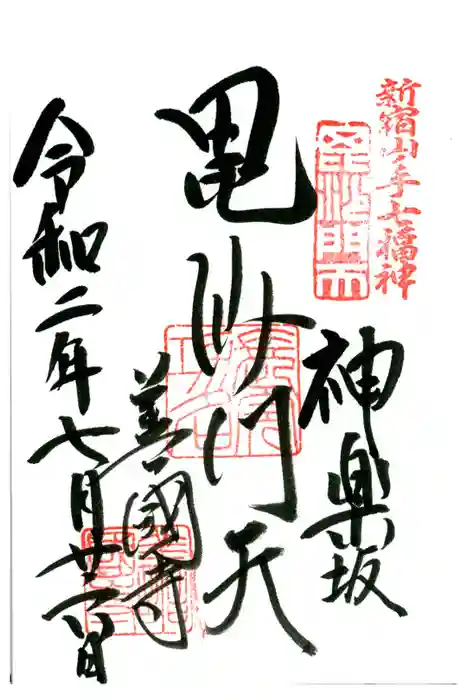 新宿山ノ手七福神
毘沙門天
神楽坂
毘沙門天
善國寺
令和二年七月廿六日